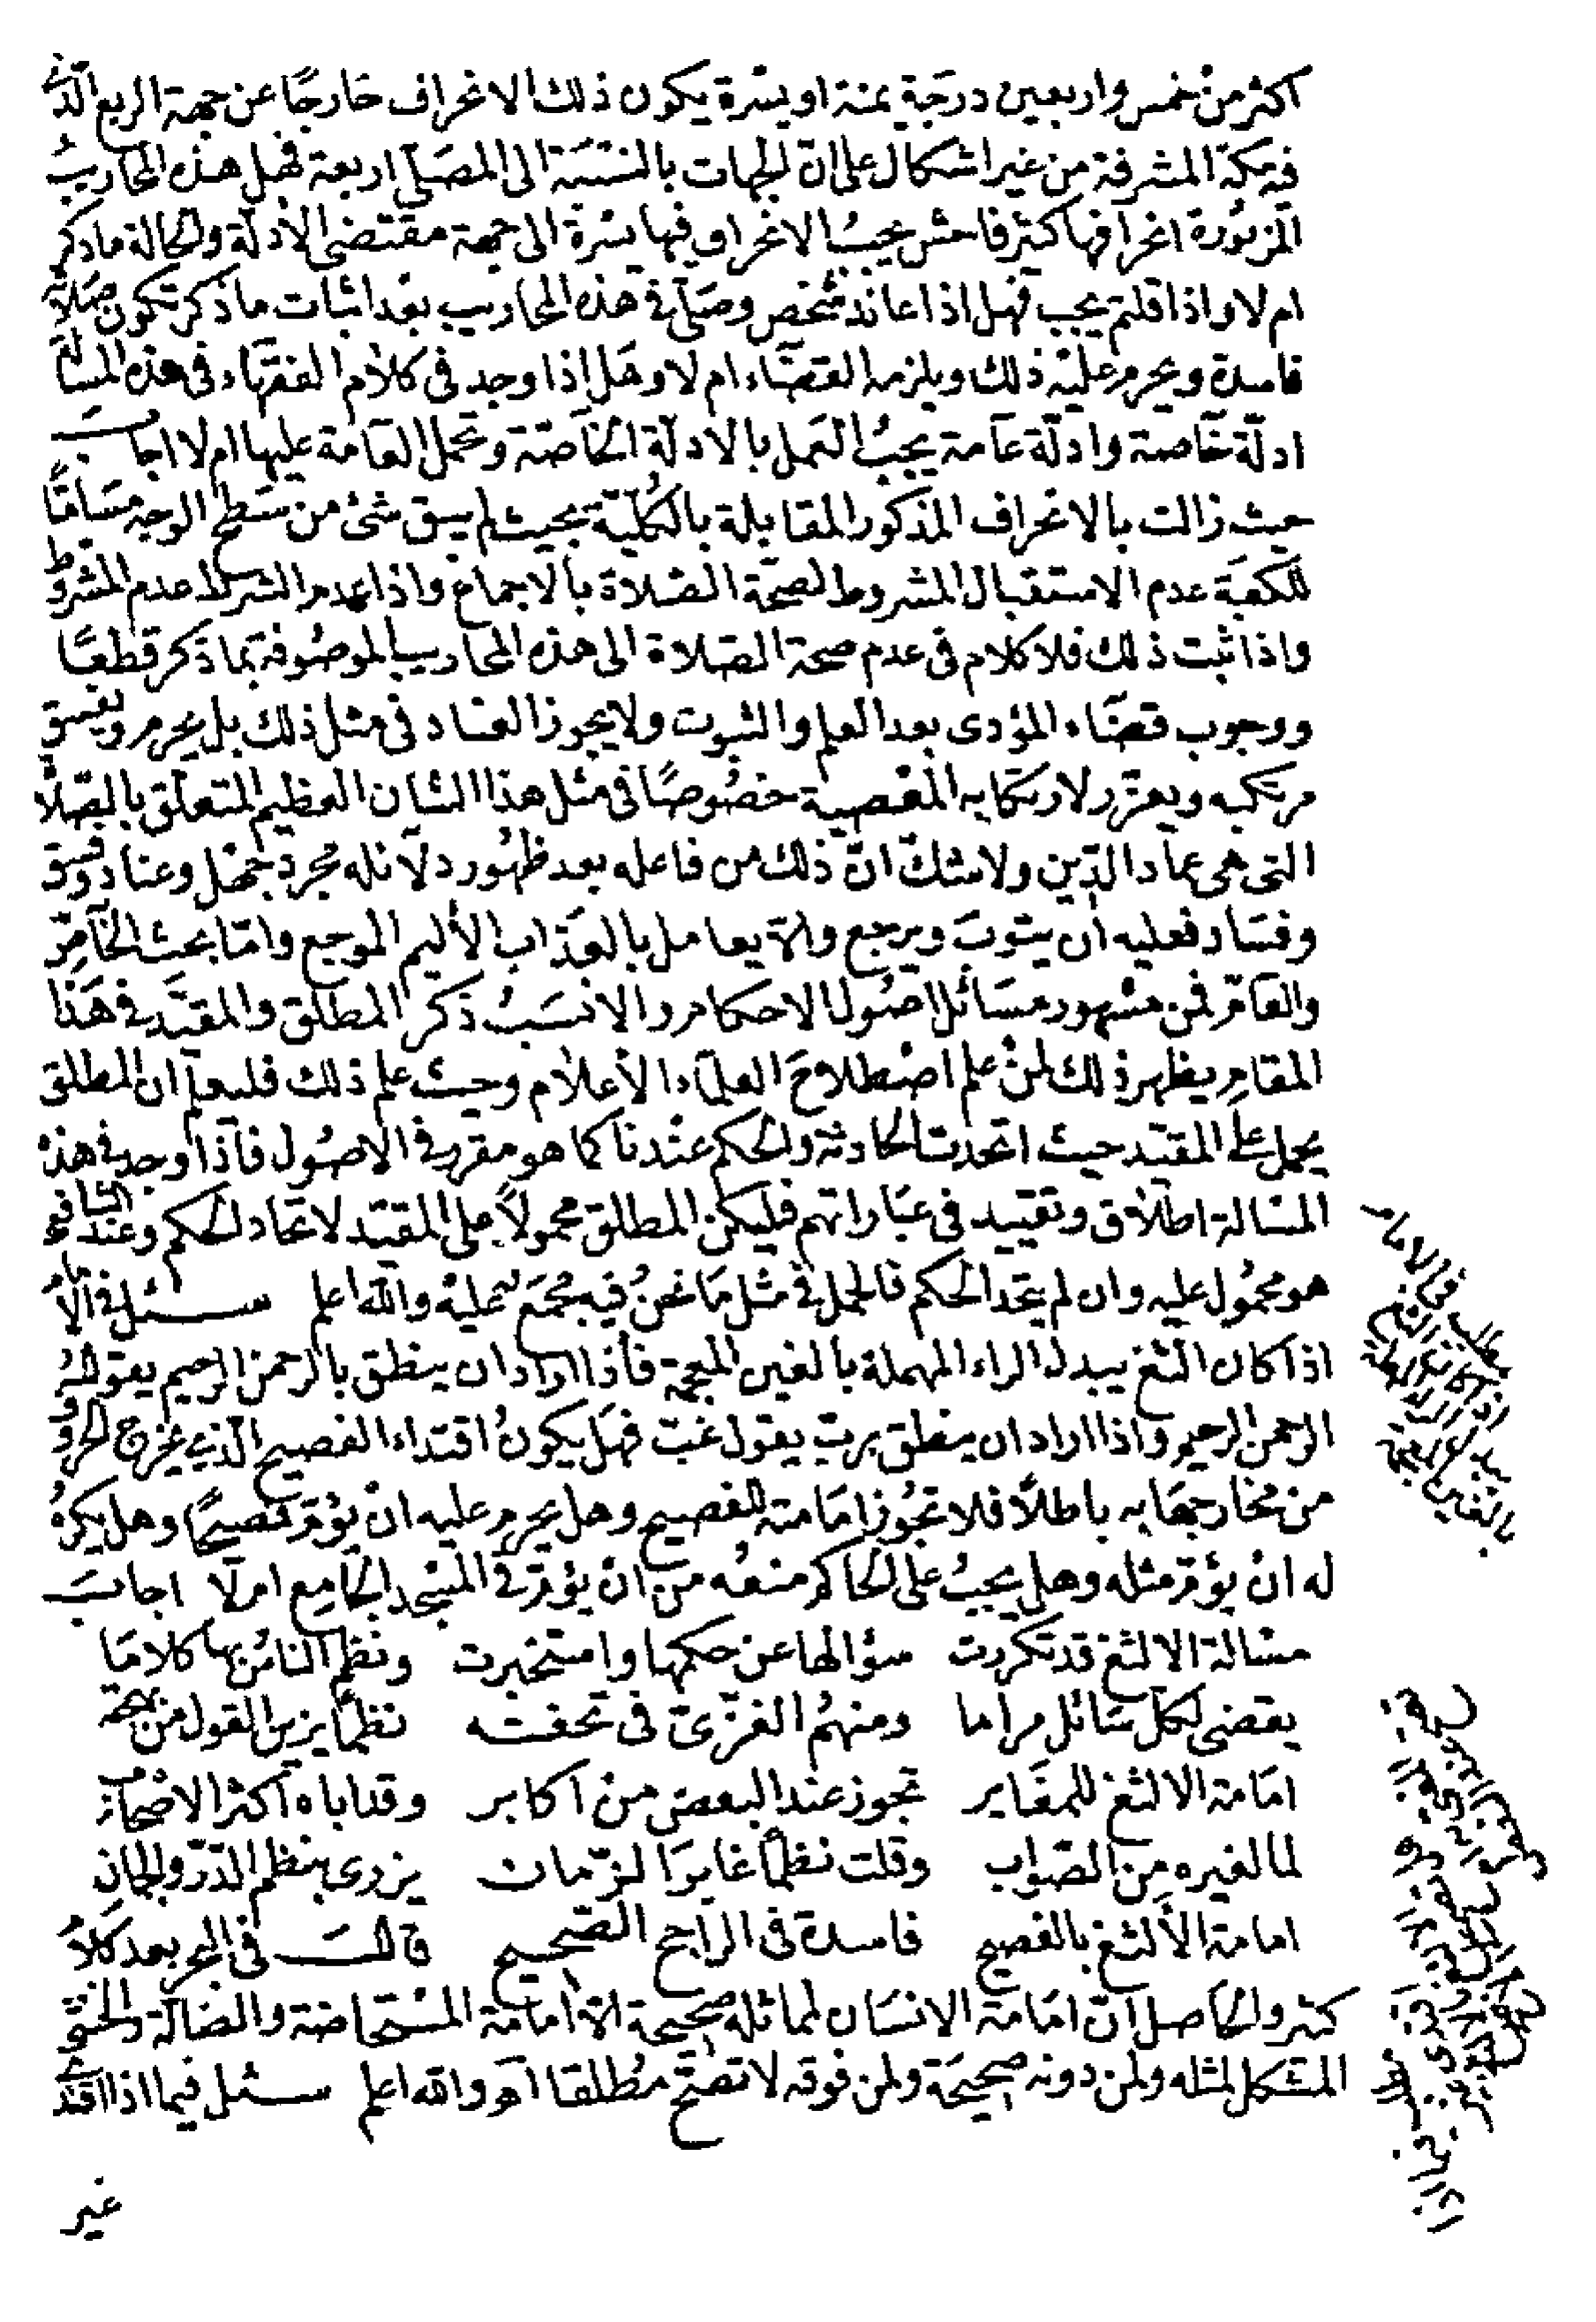 اكثر من خمس واربعين درجة يمنة او يسرة يكون ذلك الانحراف خارجًا عن جهة الربع الذي
فيه مكة المشرفة من غير اشكال على ان الجهات بالنسبة الى المصلى اربعة فهل هذه المحاريب
المزبورة انحرافها كثير فاحش يجب الانحراف فيها يسرة الى جهة مقتضى الادلة والحالة ما ذكر
ام لا واذا قلتم يجب فهل اذا عاند شخص وصلى في هذه المحاريب بعد اثبات ما ذكر تكون صلاته
فاسدة ويحرم عليه ذلك ويلزمه القضاء ام لا وهل اذا وجد في كلام الفقهاء في هذه المسألة
ادلة خاصة وادلة عامة يجب العمل بالادلة الخاصة وتحمل العامة عليها ام لا اجاب
حيث زالت بالانحراف المذكور المقابلة بالكلية بحيث لم يبق شئ من سطح الوجه مسامتًا
للكعبة عدم الاستقبال المشروط لصحة الصلاة بالاجماع واذا عدم الشرط عدم المشروط
واذا ثبت ذلك فلا كلام في عدم صحة الصلاة الى هذه المحاريب الموصوفة بما ذكر قطعًا
ووجوب قضاء المؤدى بعد العلم والثبوت ولا يجوز العناد في مثل ذلك بل يحرم ويفسق
مرتكبه ويعزر لارتكابه المعصية خصوصًا في مثل هذا الشان العظيم المتعلق بالصلاة
التي هي عماد الدين ولا شك ان ذلك من فاعله بعد ظهور دلائله مجرد جهل وعناد وفسق
وفساد فعليه ان يتوب ويرجع والا يعامل بالعذاب الأليم الموجع واما بحث الخاص
والعام فمن مشهور مسائل اصول الاحكام والانسب ذكر المطلق والمقيد في هذا
المقام يظهر ذلك لمن علم اصطلاح العلماء الأعلام وحيث علم ذلك فليعلم ان المطلق
يحمل على المقيد حيث اتحدت الحادثة والحكم عندنا كما هو مقرر في الاصول فاذا وجد في هذه
المسالة اطلاق وتقييد في عباراتهم فليكن المطلق محمولاً على المقيد لاتحاد الحكم وعند الشافعي
هو محمول عليه وان لم يتحد الحكم فالحمل في مثل ما نحن فيه مجمع عليه والله اعلم سئل في الامام
اذا كان الثغ يبدل الراء المهملة بالغين المعجمة فاذا اراد ان ينطق بالرحمن الرحيم يقول
الغحمن الغحيم واذا اراد ان ينطق برب يقول غب فهل يكون اقتداء الفصيح الذي يخرج الحروف
من مخارجها به باطلاً فلا تجوز امامته للفصيح وهل يحرم عليه ان يؤم فصيحًا وهل يكره
له ان يؤم مثله وهل يجب على الحاكم منعه من ان يؤم في المسجد الجامع ام لا اجاب
مسالة الالثغ قد تكررت سؤالها عن حكمها واستخبرت ونظم الناس بها كلاما
يقضى لكل سائل مراما ومنهم الغزي في تحفته نظما يزين القول من بهجته
امامة الالثغ للمغاير تجوز عند البعض من اكابر وقد اباه اكثر الاصحاب
لما لغيره من الصواب وقلت نظما غابر الزمان يزرى بنظم الدر والجمان
امامة الألثغ بالفصيح فاسدة في الراجح الصحيح قال في البحر بعد كلام
كثير والحاصل ان امامة الانسان لمماثله صحيحة الا امامة المستحاضة والضالة والخنثى
المشكل لمثله ولمن دونه صحيحة ولمن فوقه لا تصح مطلقا اه والله اعلم سئل فيما اذا اقتدى
غير